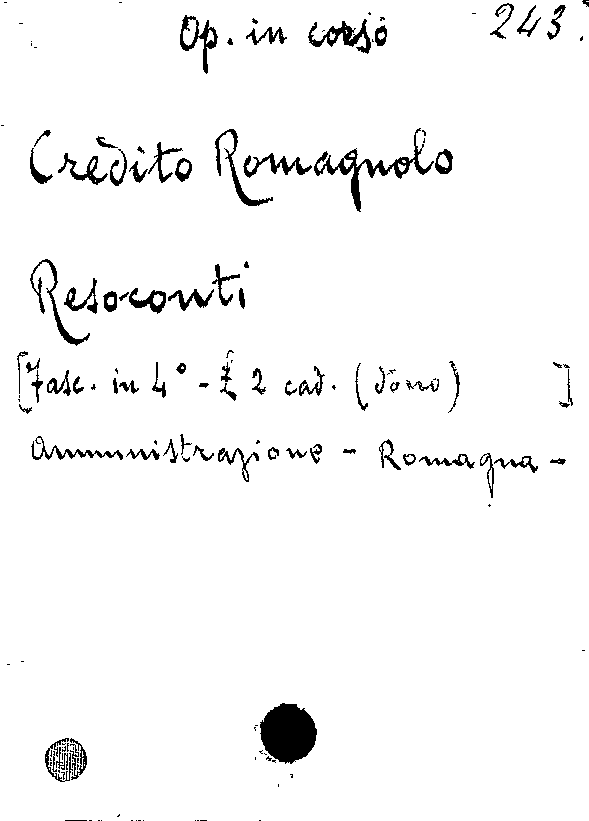 Op. in corso 243.
Credito Romagnolo
Resoconti
[Fasc. in 4° - £ 2 cad. (dono) ]
Amministrazione - Romagna -